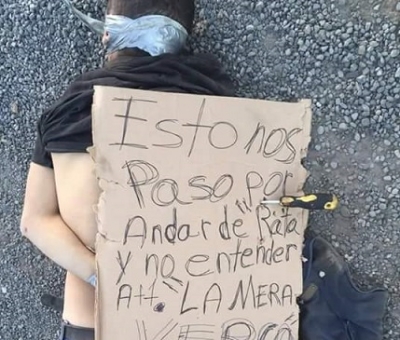 Esto nos
Paso por
Andar de "Rata"
y no entender
Att. LA MERA
VERGA